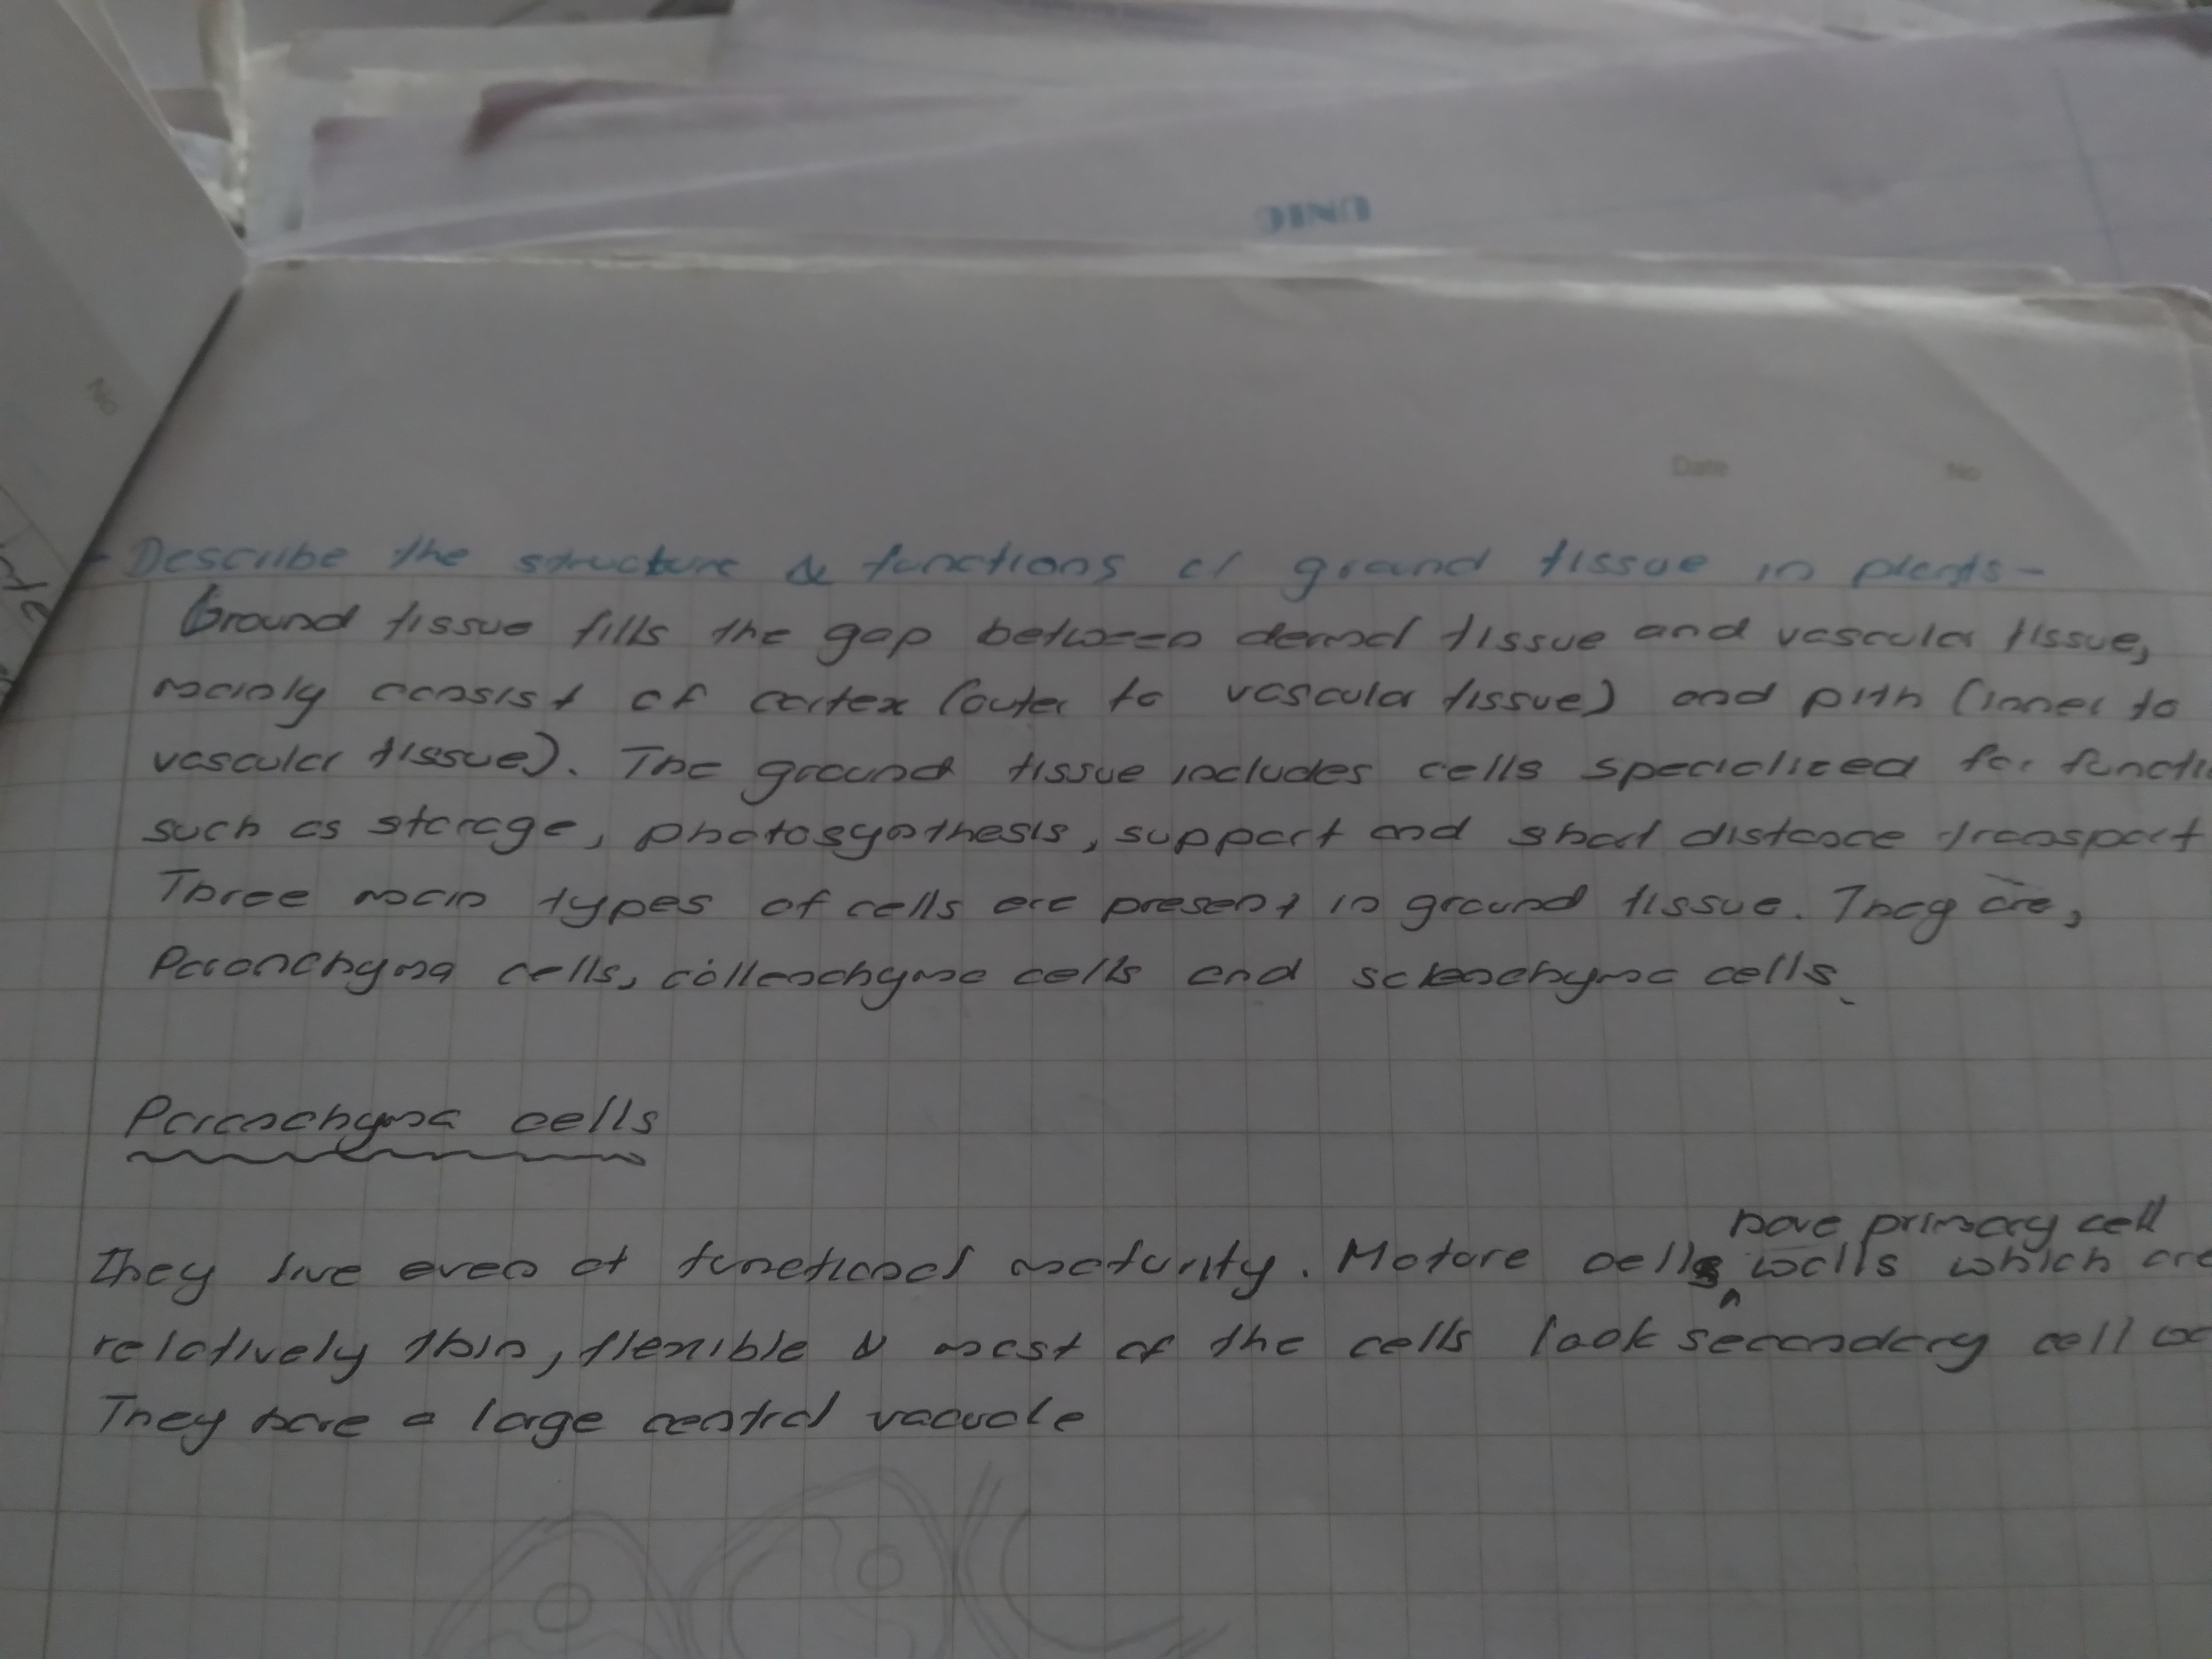 UNIC
No
Date No
- Describe the structure & functions of ground tissue in plants -
Ground tissue fills the gap between dermal tissue and vascular tissue,
mainly consist of cortex (outer to vascular tissue) and pith (inner to
vascular tissue). The ground tissue includes cells specialized for functi
such as storage, photosynthesis, support and short distance transport
Three main types of cells are present in ground tissue. They are,
Paranchyma cells, collenchyma cells and sclenchyma cells.
Parenchyma cells
have primary cell
They live even at functional maturity. Mature cells walls which are
relatively thin, flexible & most of the cells lack secondary cell
They have a large central vacuole